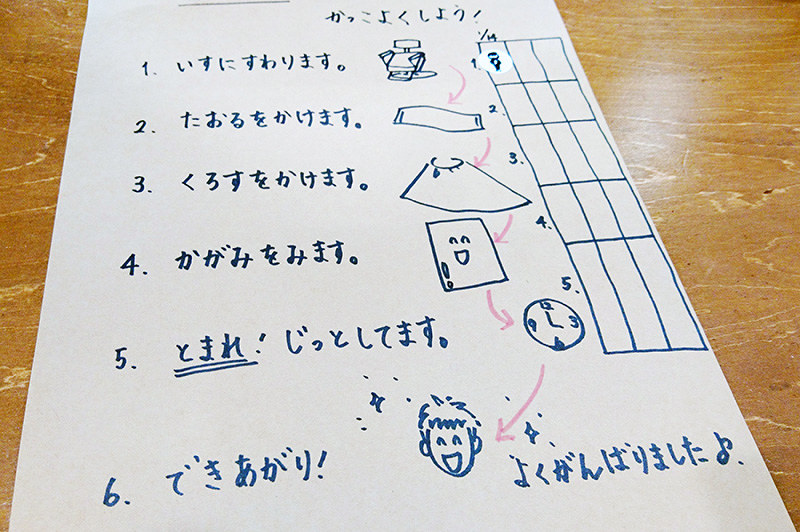 かっこよくしよう！
1/14
1. いすにすわります。
1.
2. たおるをかけます。
2.
3. くろすをかけます。
3.
4. かがみをみます。
4.
5. とまれ！じっとしてます。
5.
12
9 3
6
6. できあがり！
よくがんばりました♪